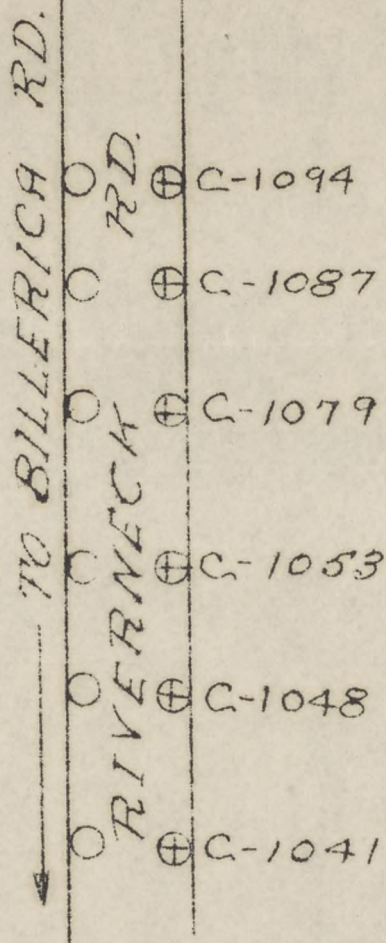 TO BILLERICA RD.
RIVERNECK RD.
C-1094
C-1087
C-1079
C-1053
C-1048
C-1041